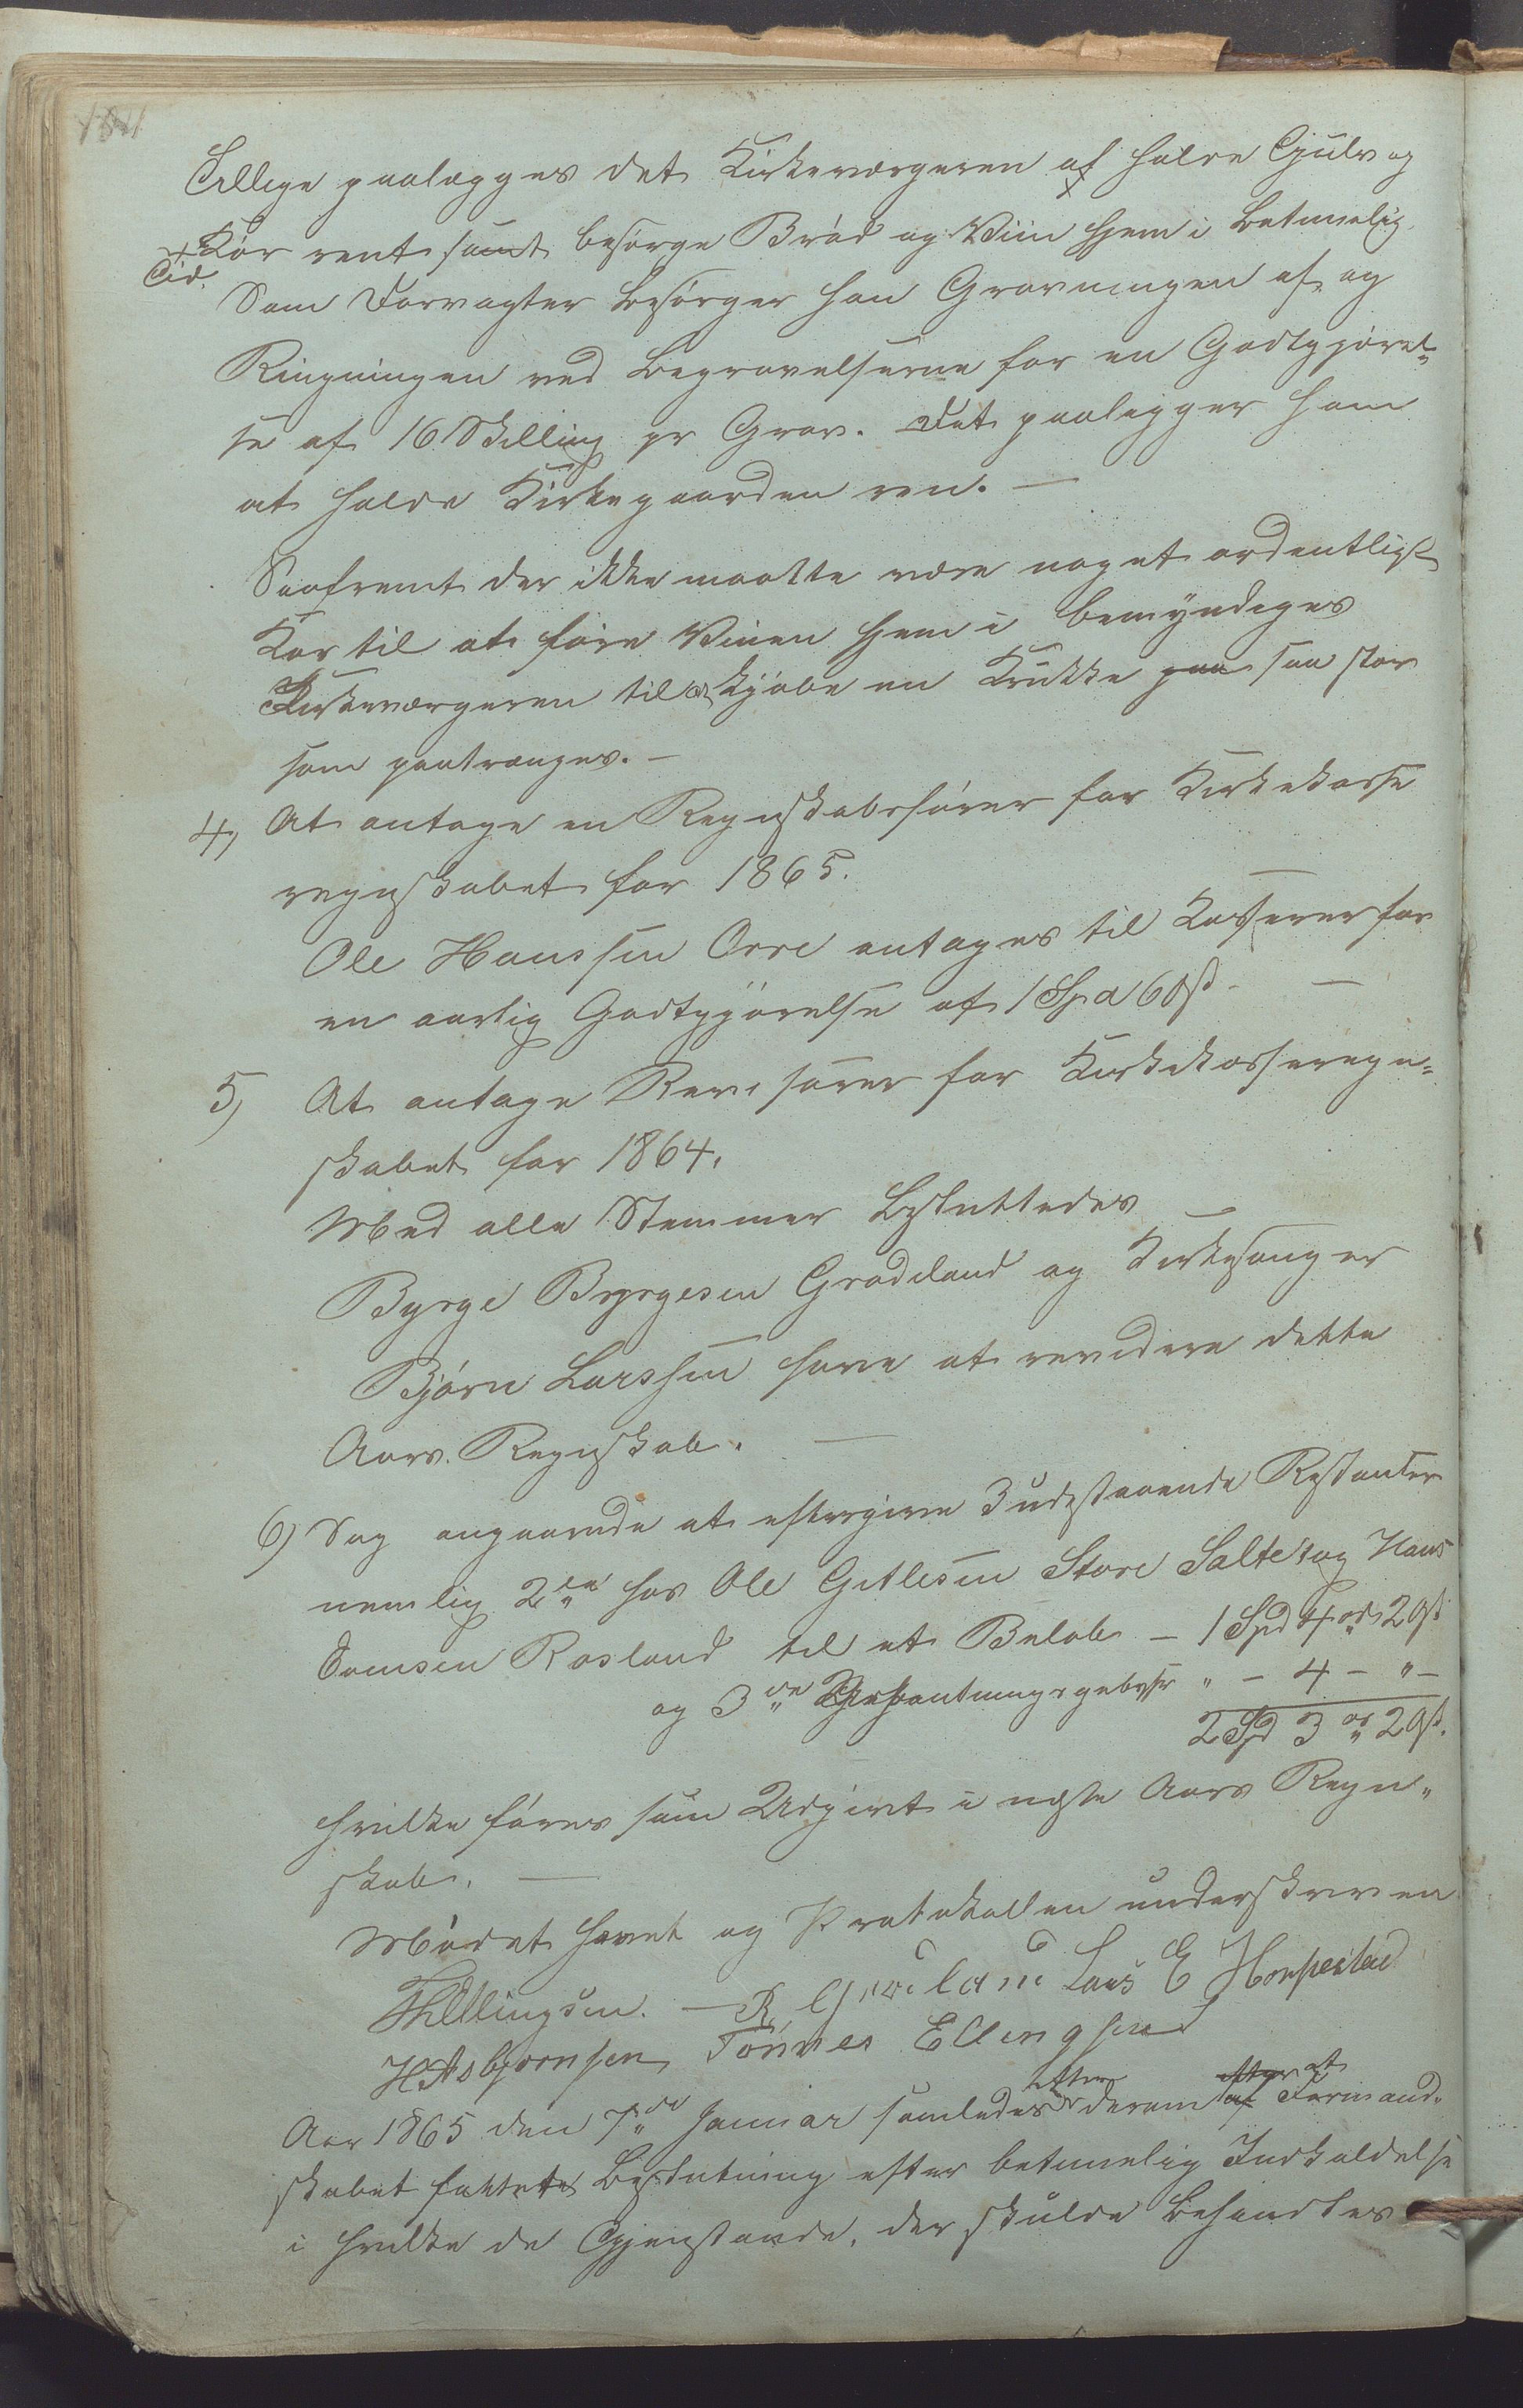 Tillige paalægges det Kirkeværgeren at holde Gulv og
x Kor rent samt besørge Brød og Viin hjem i betimelig
Tid.
Som Forvagter besørger han Gravningen af og
Ringningen ved Begravelserne for en Godtgjørel„
se af 16 Skilling pr Grav. Det paaligger ham
at holde Kirkegaarden ren. —
Saafremt der ikke maatte være noget ordentligt
Kar til at føre Vinen hjem i bemyndiges
Kirkeværgeren til at kjøbe en Krukke paa saa stor
som paatrænges. —
4, At antage en Regnskabsfører for Kirkekasse
regnskabet for 1865.
Ole Hanssen Orre antages til Kasserer for
en aarlig Godtgjørelse af 1 Spd 60 ß. —
5) At antage Revisorer for Kirkekasseregn=
skabet for 1864.
Med alle Stemmer besluttedes
Byrge Byrgesen Grødeland og Kirkesanger
Bjørn Larssen have at revidere dette
Aars Regnskab. —
6) Sag angaaende at eftergive 3 udestaaende Restantser
nemlig 2de hos Ole Gitlesen Store Salte og Hans
Tomsen Rosland til et Beløb — 1 Spd 4 ort 20 ß
og 3de Udpantningsgebyhr „ — 4 — „ —
2 Spd 3 ort 20 ß.
hvilke føres som Udgivt i neste Aars Regn„
skab. —
Mødet hævet og Protokollen underskreven
T Ellingsen. — B Grødeland Lars E Horpestad
H Asbjørnsen Tønnes Ellingsen
efter efter at
Aar 1865 den 7de Januar samledes derom af Formand„
skabet fattet Beslutning efter betimelig Indkaldelse
i hvilke de Gjenstande, der skulde behandles